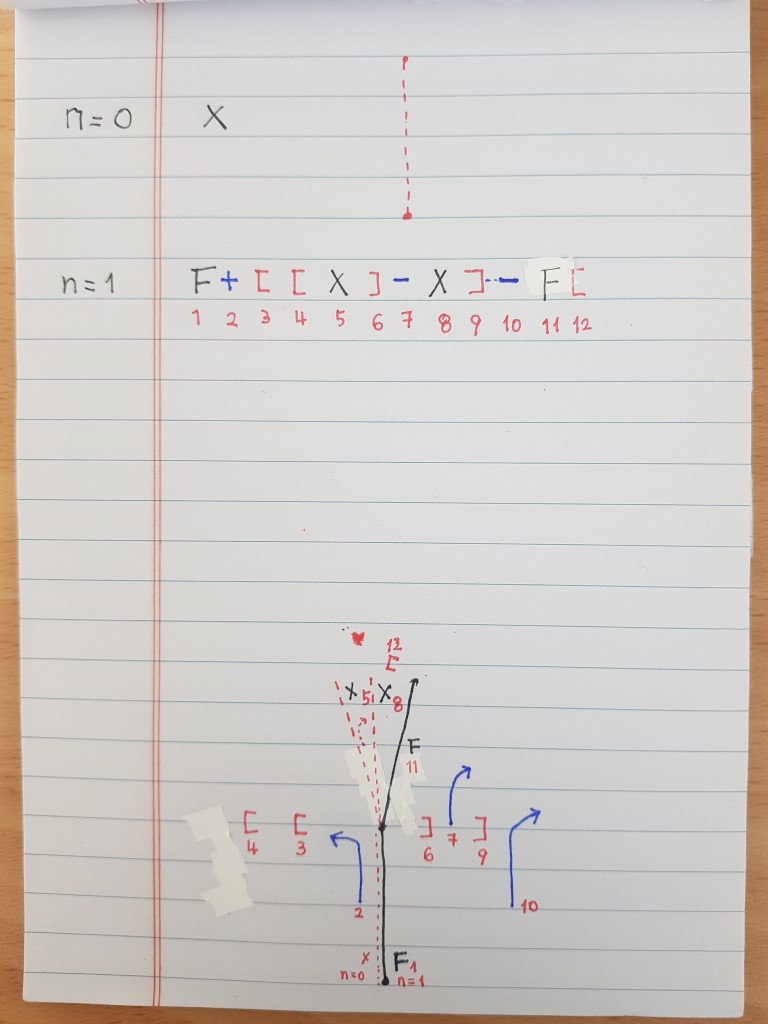 n=0 X
n=1 F+[[X]-X]-F[
1 2 3 4 5 6 7 8 9 10 11 12
12
[
X 5 X 8
F
11
[ [ ] 7 ]
4 3 6 9
2 10
X F1
n=0 n=1